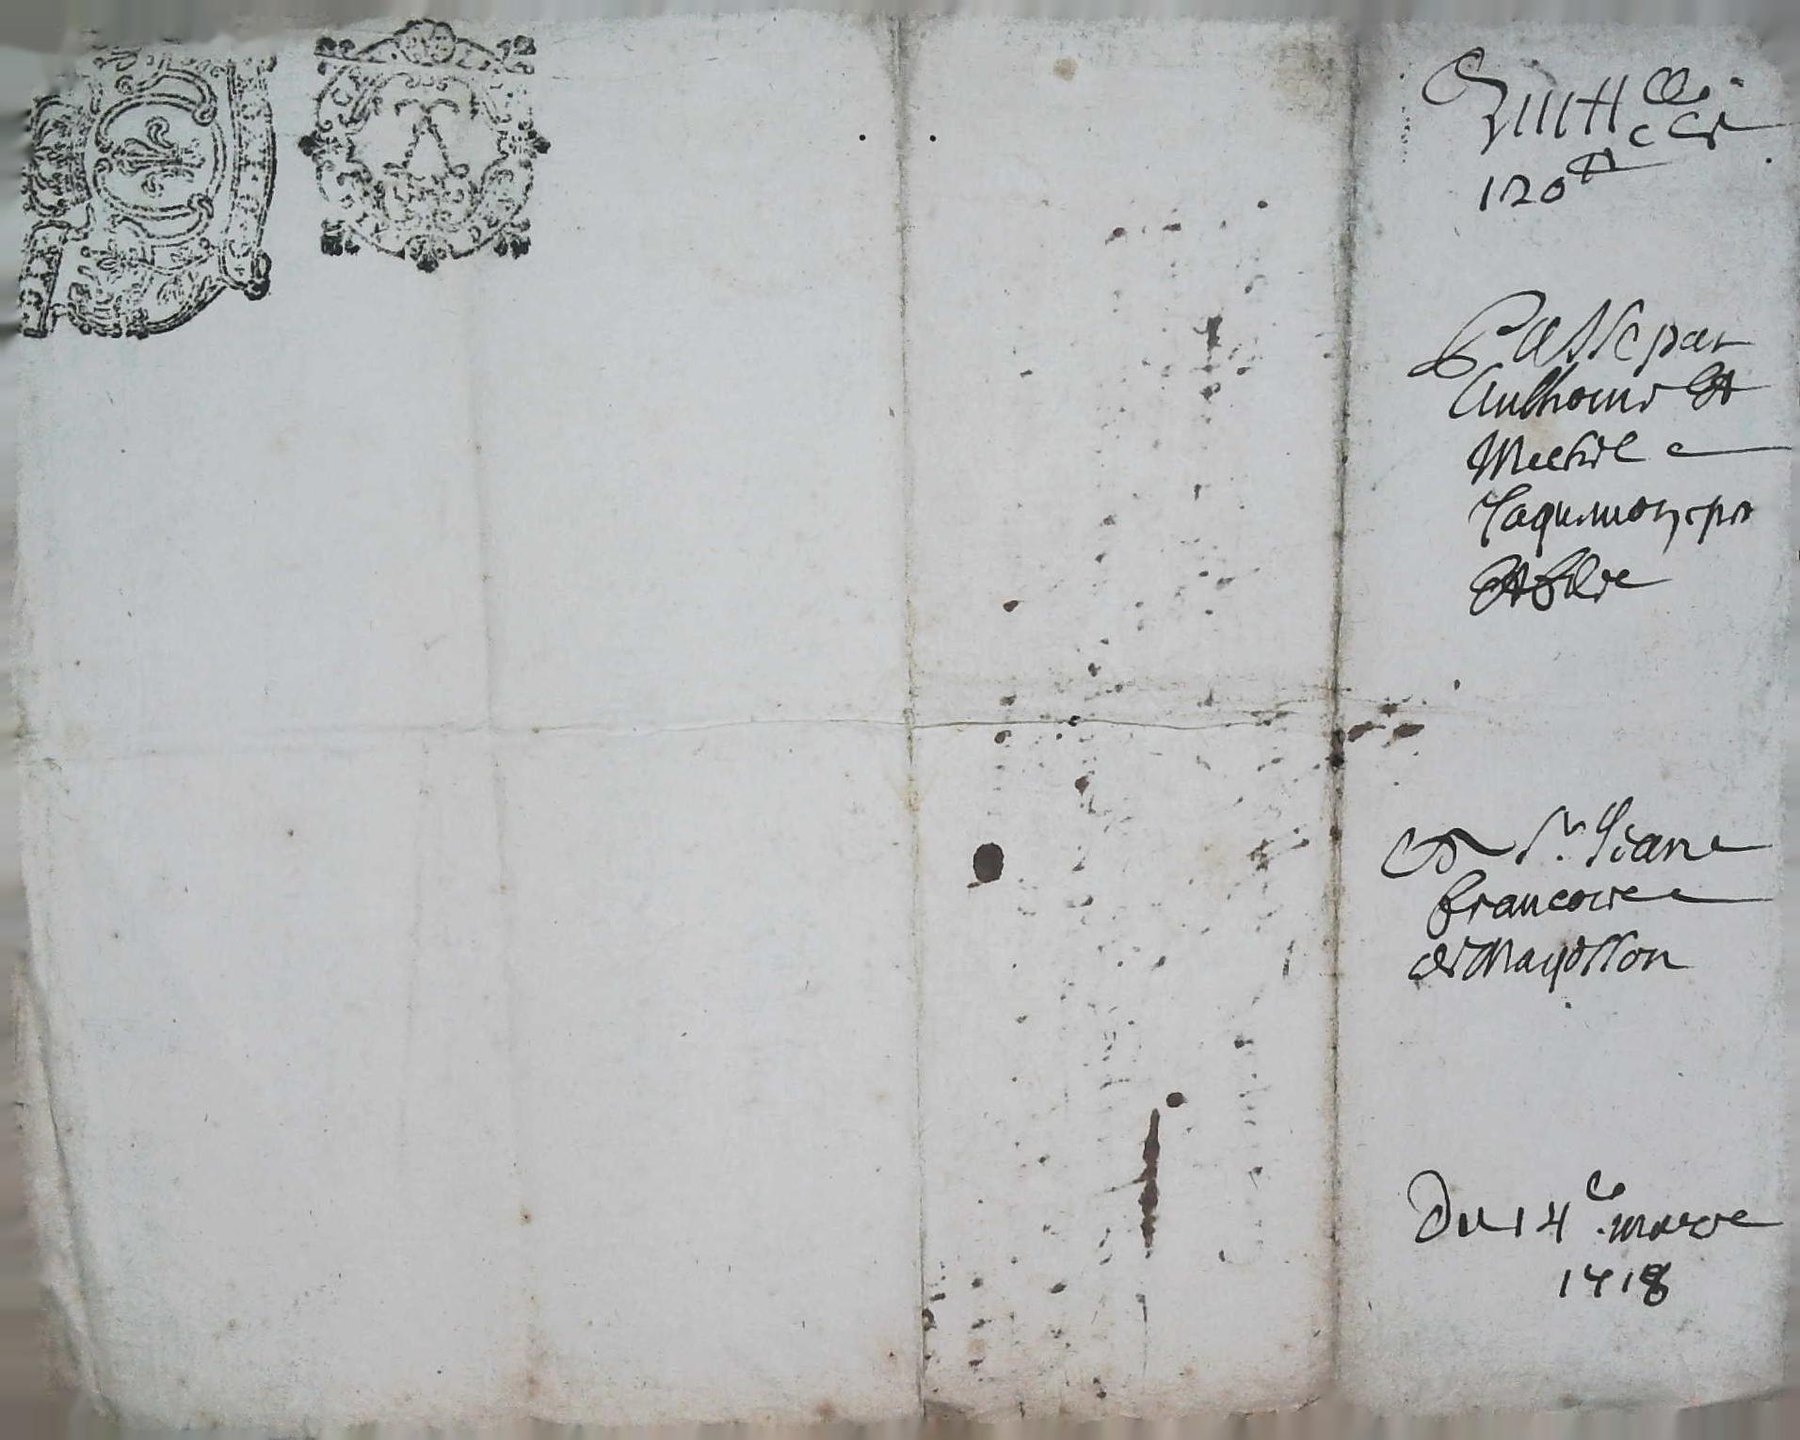 Quitt^ce de
120^tt
Passe par
Anthoine et
Michel
Jaquemon per
et filz
A S^r. Jean
francois
de Mayosson
Du 14^e mars
1718